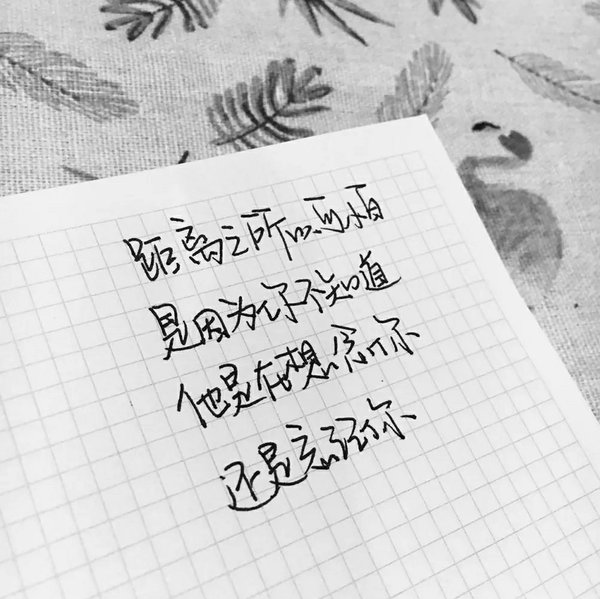 距离之所以可怕
是因为你不知道
他是在想念你
还是忘记你